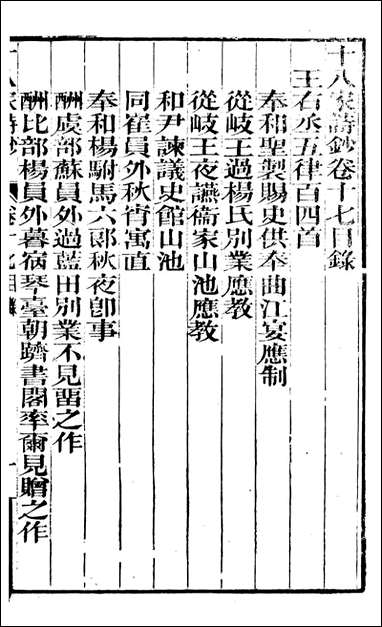 十八家詩鈔卷十七目錄
王右丞五律百四首
奉和聖製賜史供奉曲江宴應制
從岐王過楊氏別業應教
從岐王夜讌衞家山池應教
和尹諫議史館山池
同崔員外秋宵寓直
奉和楊駙馬六郎秋夜卽事
酬虞部蘇員外過藍田別業不見畱之作
酬比部楊員外暮宿琴臺朝躋書閣率爾見贈之作